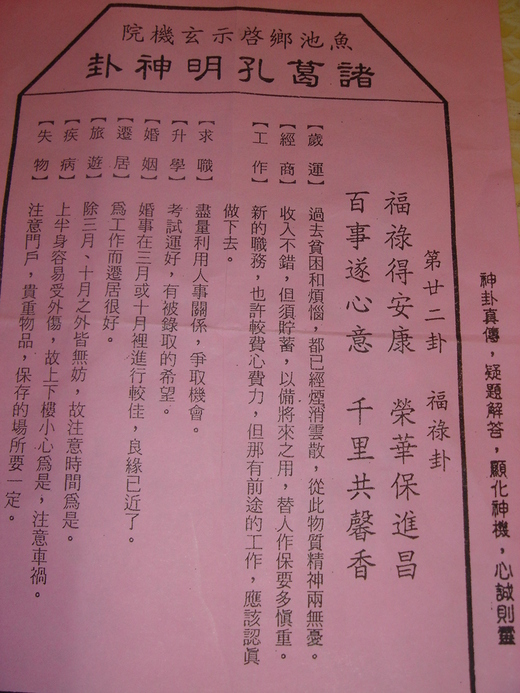 魚池鄉啓示玄機院
諸葛孔明神卦
神卦真傳，疑題解答，顯化神機，心誠則靈
第廿二卦　福祿卦
福祿得安康　榮華保進昌
百事遂心意　千里共馨香
【歲運】過去貧困和煩惱，都已經煙消雲散，從此物質精神兩無憂。
【經商】收入不錯，但須貯蓄，以備將來之用，替人作保要多慎重。
【工作】新的職務，也許較費心費力，但那有前途的工作，應該認眞
做下去。
【求職】盡量利用人事關係，爭取機會。
【升學】考試運好，有被錄取的希望。
【婚姻】婚事在三月或十月裡進行較佳，良緣已近了。
【遷居】爲工作而遷居很好。
【旅遊】除三月、十月之外皆無妨，故注意時間爲是。
【疾病】上半身容易受外傷，故上下樓小心爲是，注意車禍。
【失物】注意門戶，貴重物品，保存的場所要一定。